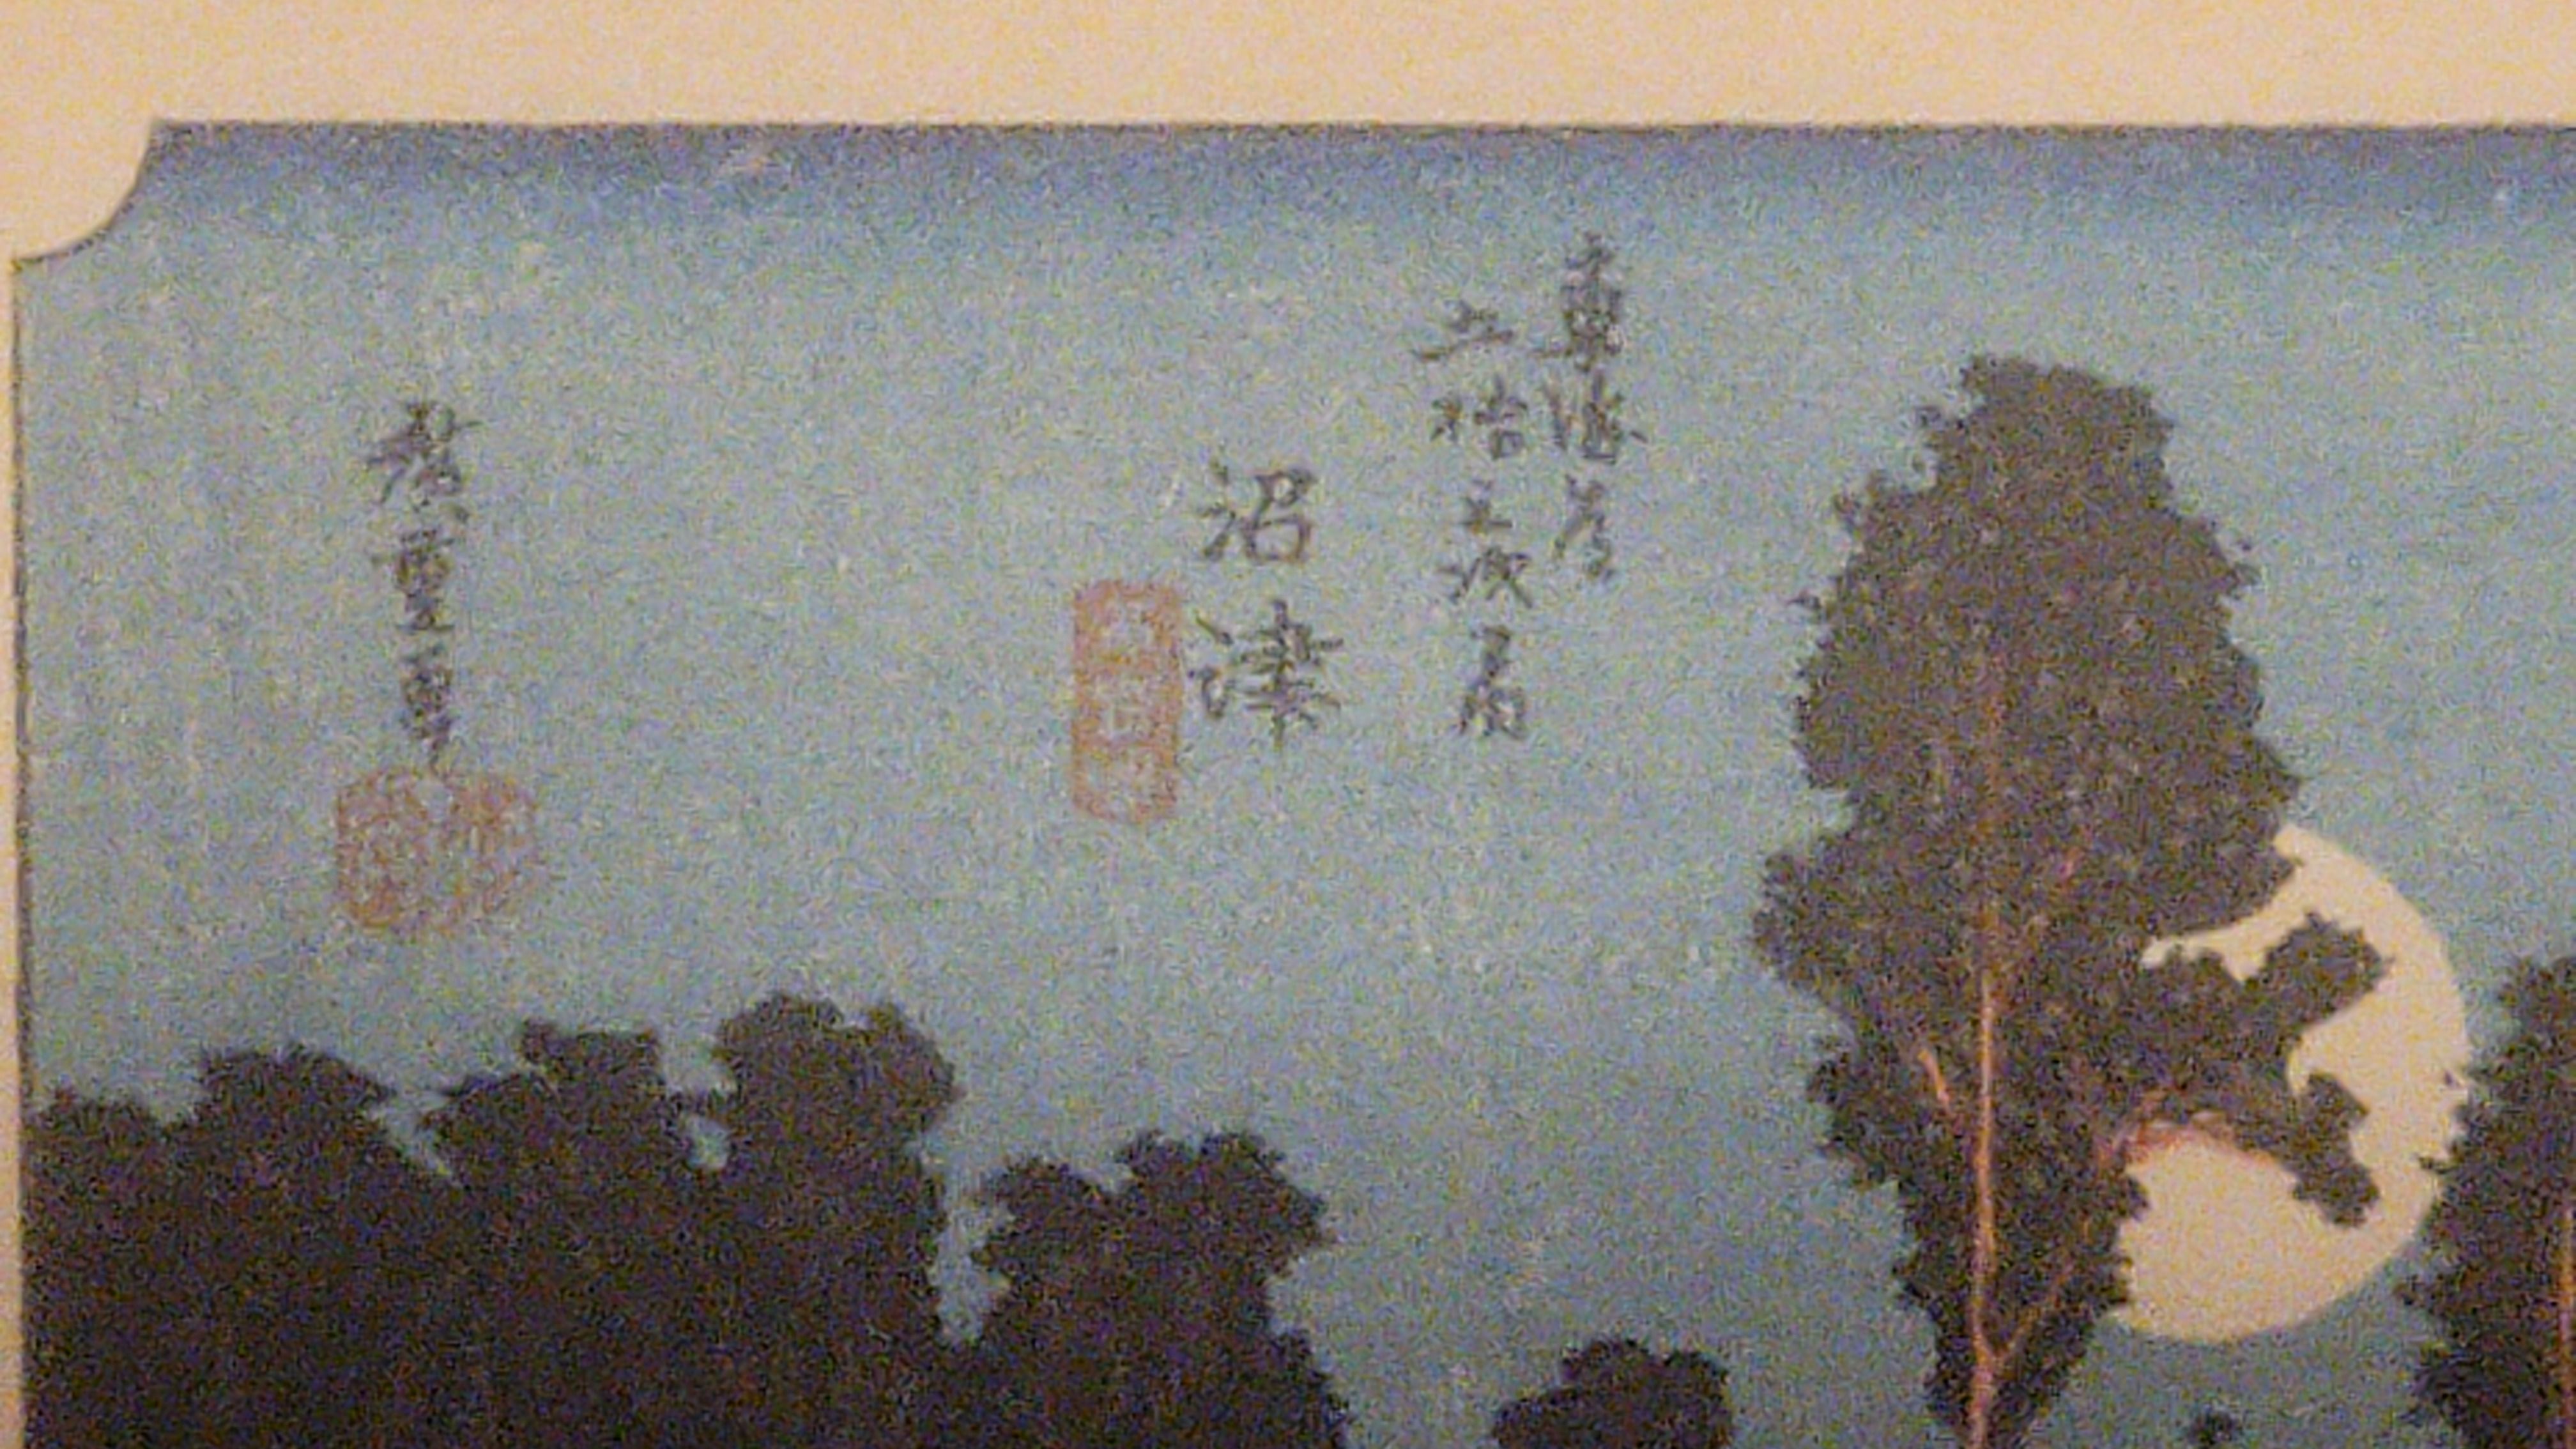 東海道
五拾三次之内
沼津
廣重画